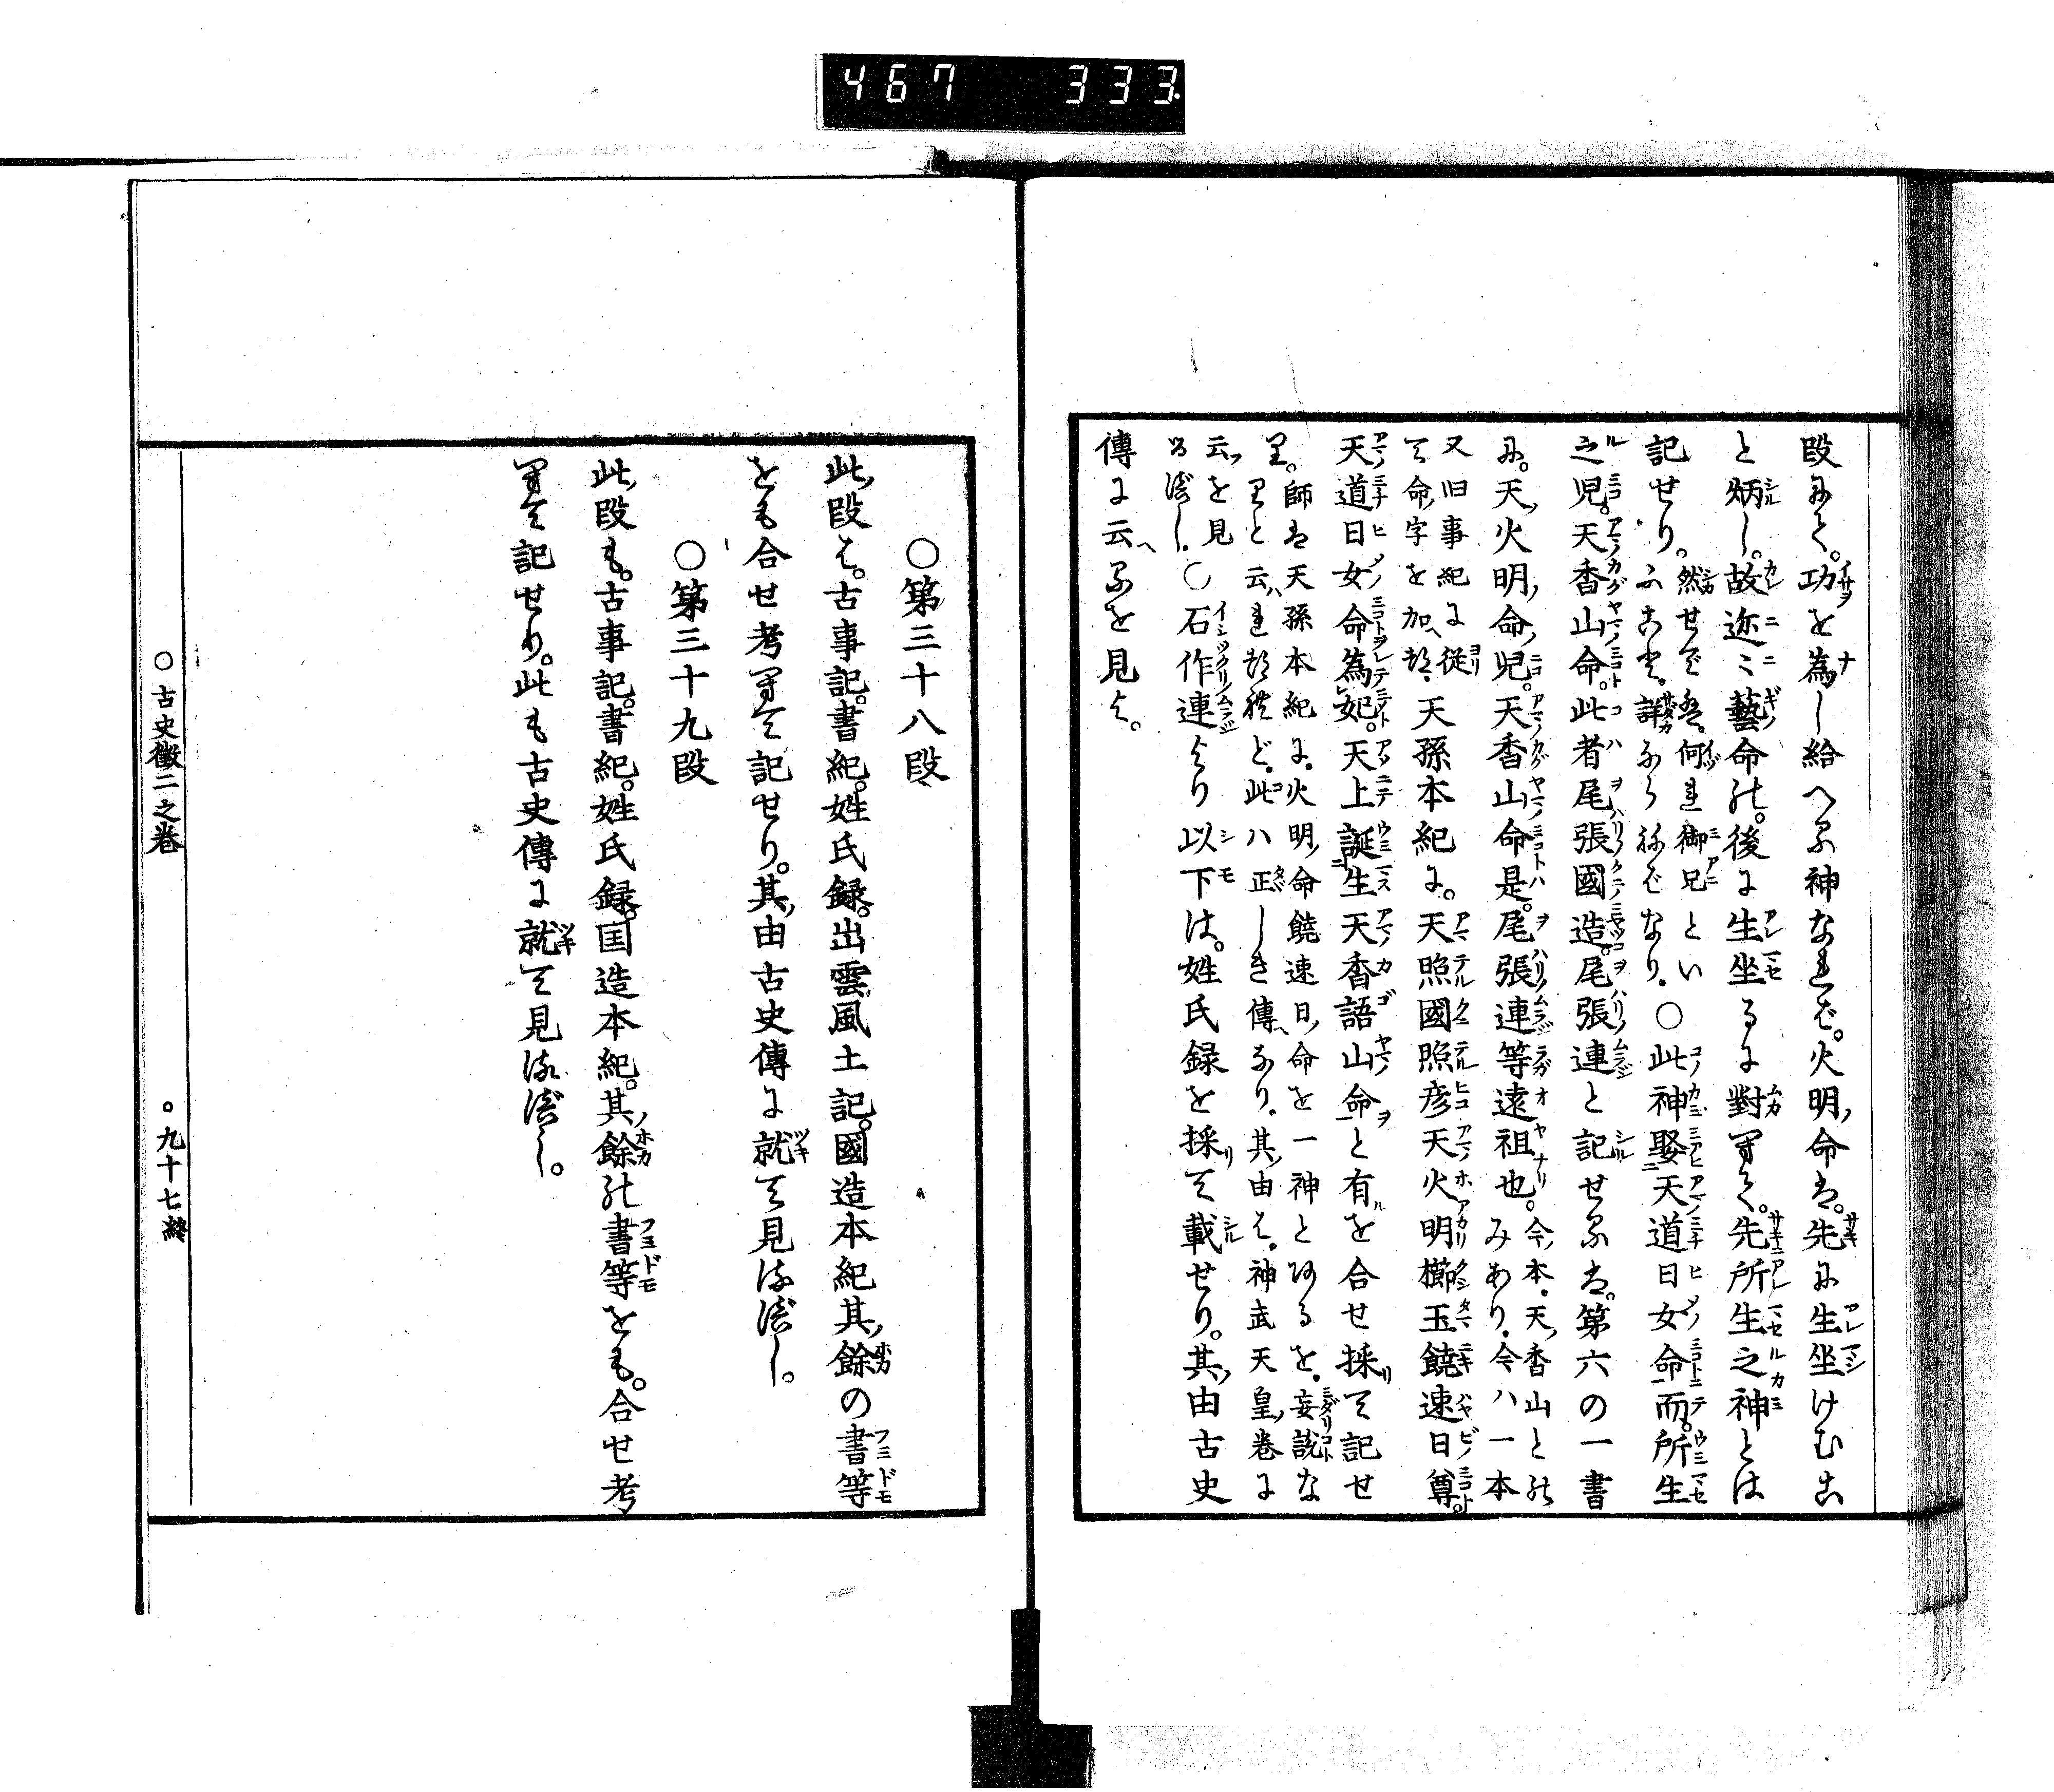 467 333
段にて。功を為し給へる神なれば。火明命は。先に生坐けむこ
と炳し。故迩々藝命の。後に生坐るに對へて。先所生之神とは
記せり。然せでは。何れ御兄とい
ふこと。詳ならねばなり。○此神娶天道日女命而。所生
之児。天香山命。此者尾張國造。尾張連と記せるは。第六の一書
に。天火明命児。天香山命是。尾張連等遠祖也。今本。天香山との
みあり。今ハ一本
又旧事紀に従
て命字を加へつ。天孫本紀に。天照國照彦天火明櫛玉饒速日尊。
天道日女命為妃。天上誕生天香語山命と有を合せ採て記せ
り。師は天孫本紀に。火明命饒速日命を一神とあるを。妄説な
りと云ハれつれど。此ハ正しき傳なり。其由は。神武天皇巻に
云を見
るべし。○石作連より以下は。姓氏録を採て載せり。其由古史
傳に云へるを見よ。
○第三十八段
此段は。古事記。書紀。姓氏録。出雲風土記。國造本紀其餘の書等
をも合せ考へて記せり。其由古史傳に就て見るべし。
○第三十九段
此段も。古事記。書紀。姓氏録。国造本紀。其餘の書等をも。合せ考
へて記せり。此も古史傳に就て見るべし。
○古史徴二之巻 ○九十七終